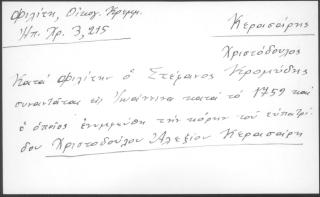 Φιλίτη, Οἰκογ. Κρομμ.
Ἠπ. Χρ. 3, 215
Κερασάρης
Χριστόδουλος
Κατὰ Φιλίτην ὁ Στέφανος Κρομύδης
συναντᾶται εἰς Ἰωάννινα κατὰ τὸ 1759 καὶ
ὁ ὁποῖος ἐνυμφεύθη τὴν κόρην τοῦ εὐπατρί
δου Χριστοδούλου Ἀλεξίου Κερασάρη